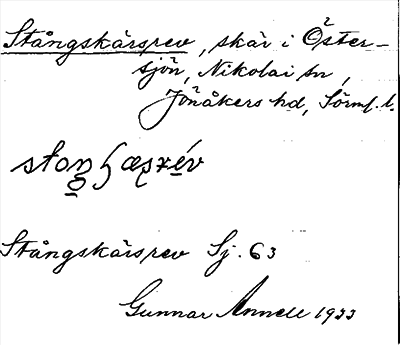 Stångskärsrev, skär i Öster-
sjön, Nikolai sn,
Jönåkers hd, Sörml. l.
Stångskärsrev Sj. 63
Gunnar Annell 1933